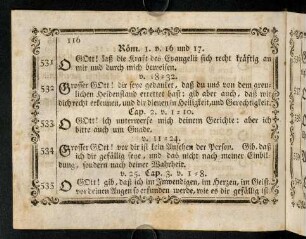 116
Röm. 1. v. 16 und 17.
531. O GOtt! laß die Kraft des Evangelii sich recht kräftig an
mir und durch mich beweisen.
v. 18=32.
532. Grosser GOtt! dir seye gedanket, daß du uns von dem greu-
lichen Heidenstand errettet hast; gib aber auch, daß wir
dich recht erkennen, und dir dienen in Heiligkeit und Gerechtigkeit.
Cap. 2. v. 1=10.
533. O GOtt! ich unterwerfe mich deinem Gerichte: aber ich
bitte auch um Gnade.
v. 11=24.
534. Grosser GOtt! vor dir ist kein Ansehen der Person. Gib, daß
ich dir gefällig seye, und das nicht nach meiner Einbil-
dung, sondern nach deiner Wahrheit.
v. 25. Cap. 3. v. 1=8.
535. O GOtt! gib, daß ich im Inwendigen, im Herzen, im Geist,
vor deinen Augen so erfunden werde, wie es dir gefällig ist.